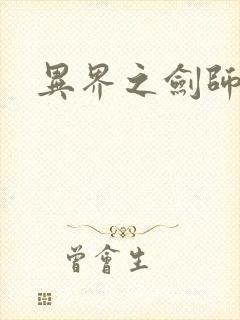 異界之劍師
曾會生